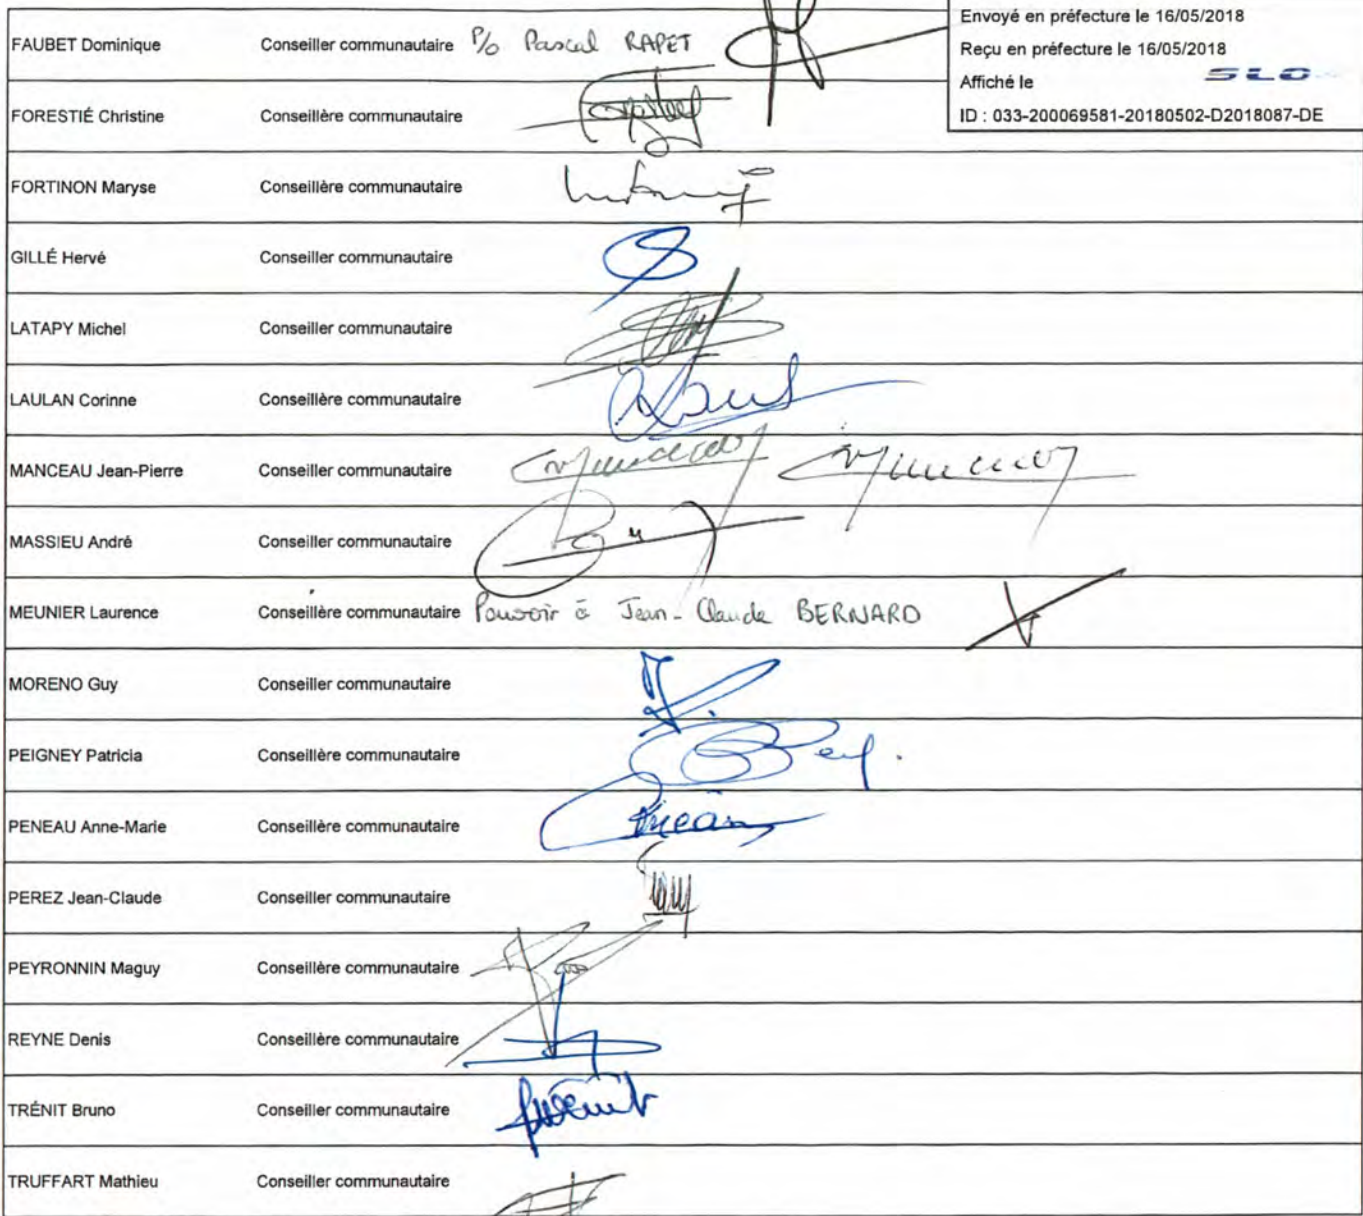 Envoyé en préfecture le 16/05/2018
Reçu en préfecture le 16/05/2018
Affiché le SLO
ID : 033-200069581-20180502-D2018087-DE
FAUBET Dominique Conseiller communautaire P/o Pascal RAPET
FORESTIÉ Christine Conseillère communautaire
FORTINON Maryse Conseillère communautaire
GILLÉ Hervé Conseiller communautaire
LATAPY Michel Conseiller communautaire
LAULAN Corinne Conseillère communautaire
MANCEAU Jean-Pierre Conseiller communautaire
MASSIEU André Conseiller communautaire
MEUNIER Laurence Conseillère communautaire Pouvoir à Jean-Claude BERNARD
MORENO Guy Conseiller communautaire
PEIGNEY Patricia Conseillère communautaire
PENEAU Anne-Marie Conseillère communautaire
PEREZ Jean-Claude Conseiller communautaire
PEYRONNIN Maguy Conseillère communautaire
REYNE Denis Conseillère communautaire
TRÉNIT Bruno Conseiller communautaire
TRUFFART Mathieu Conseiller communautaire